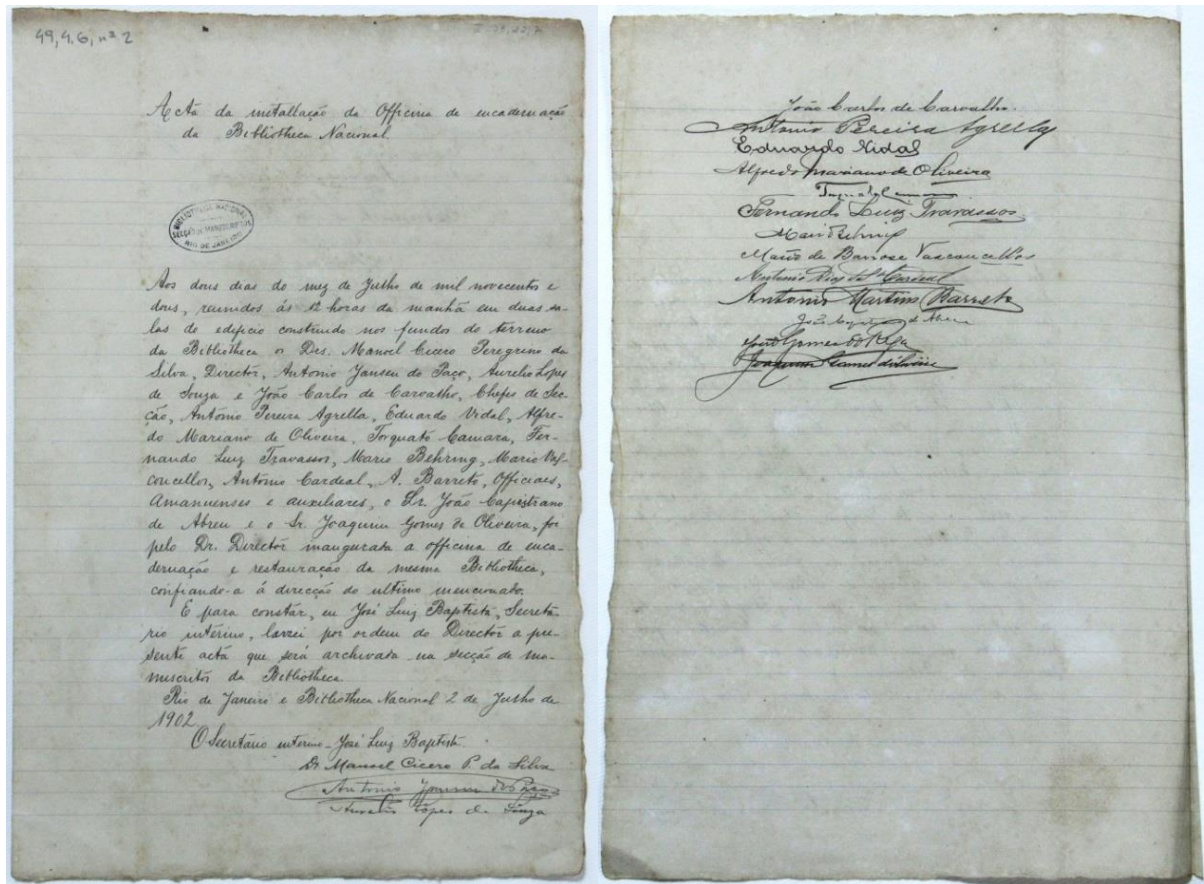 49,4,6, nº 2
Acta da installação da Officina de encadernação
da Bibliotheca Nacional
BIBLIOTHECA NACIONAL
SECÇÃO DE MANUSCRIPTOS
RIO DE JANEIRO
Aos dous dias do mez de Julho de mil novecentos e
dous, reunidos ás 12 horas da manhã em duas sa-
las do edificio construido nos fundos do terreno
da Bibliotheca os Drs. Manoel Cicero Peregrino da
Silva, Director, Antonio Jansen do Paço, Aurelio Lopes
de Souza e João Carlos de Carvalho, Chefes de Sec-
ção, António Pereira Agrella, Eduardo Vidal, Alfre-
do Mariano de Oliveira, Torquato Camara, Fer-
nando Luiz Travassos, Mario Behring, Mario Vas-
concellos, António Cardeal, A. Barreto, Officiaes,
Amanuenses e auxiliares, o Sr. João Capistrano
de Abreu e o Sr. Joaquim Gomes de Oliveira, foi
pelo Dr. Director inaugurada a officina de enca-
dernação e restauração da mesma Bibliotheca,
confiando-a á direcção do ultimo mencionado.
E para constár, eu José Luiz Baptista, Secreta-
rio interino, lavrei por ordem do Director a pre-
sente actá que será archivada na secção de ma-
nuscritos da Bibliotheca.
Rio de Janeiro e Bibliotheca Nacional 2 de Julho de
1902.
O Secretário interino - José Luiz Baptista
Dr Manoel Cicero P. da Silva
Antonio Jansen do Paço
Aurelio Lopes de Souza
João Carlos de Carvalho.
Antonio Pereira Agrella
Eduardo Vidal
Alfredo Mariano de Oliveira
Torquato Camara
Fernando Luiz Travassos
Mario Behring
Mario de Barros e Vasconcellos
Antonio Cardeal
Antonio Martins Barreto
João de Abreu
Joaquim Gomes d'Oliveira